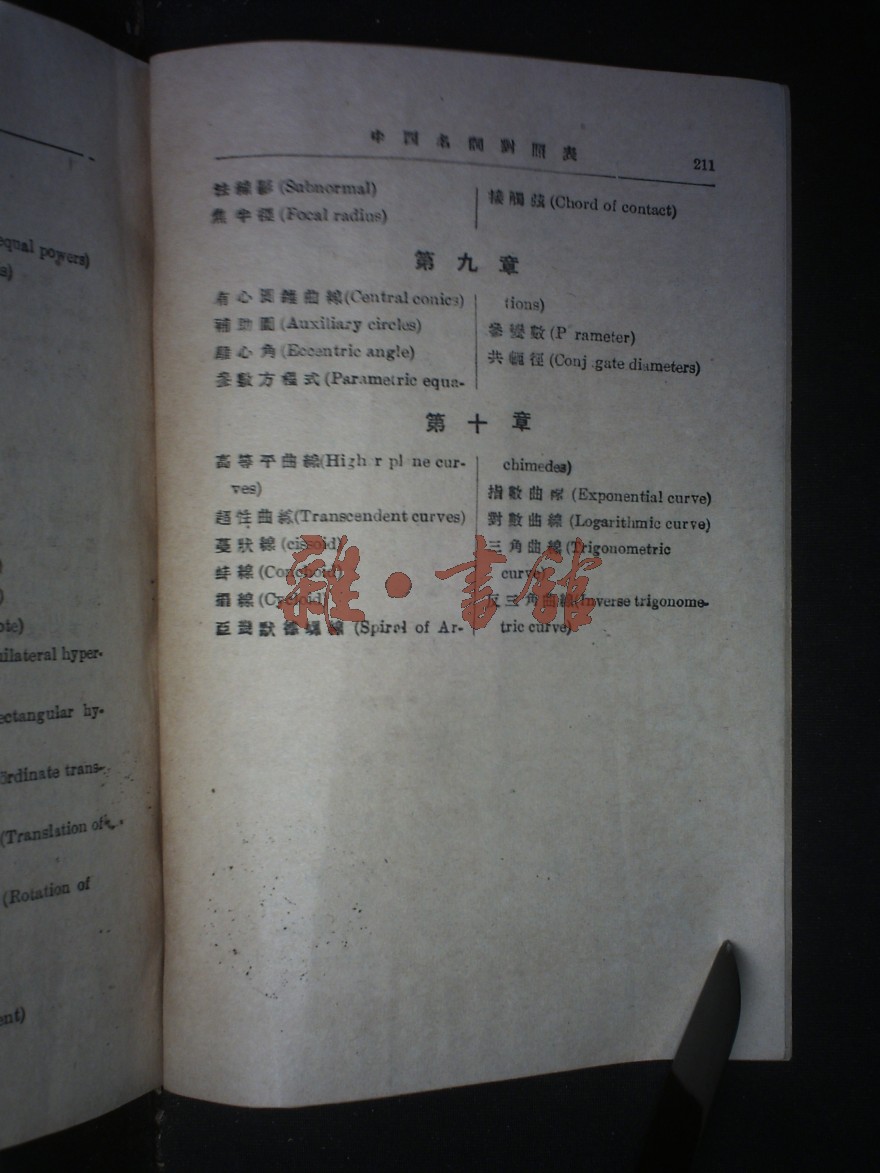 equal powers)
s)
)
)
ote)
uilateral hyper-
ectangular hy-
ördinate trans-
(Translation of
(Rotation of
ent)
對照表
211
法線影 (Subnormal)
焦半徑 (Focal radius)
接觸弦 (Chord of contact)
第九章
有心圓錐曲線(Central conics)
補助圓 (Auxiliary circles)
離心角 (Eccentric angle)
參數方程式 (Parametric equa-
tions)
參變數 (P rameter)
共軛徑 (Conj gate diameters)
第十章
高等平曲線(High r pl ne cur-
ves)
超性曲線(Transcendent curves)
蔓狀線 (cissoid)
蚌線 (Conchoid)
擺線 (Cycloid)
線 (Spiral of Ar-
chimedes)
指數曲線 (Exponential curve)
對數曲線 (Logarithmic curve)
三角曲線 (Trigonometric
curve)
反三角曲線(Inverse trigonome-
tric curve)
雜·書館